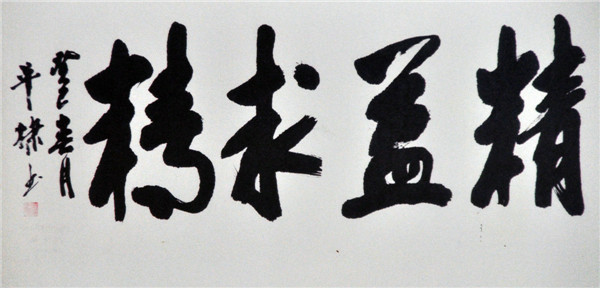 精益求精
癸巳春月
平棣书